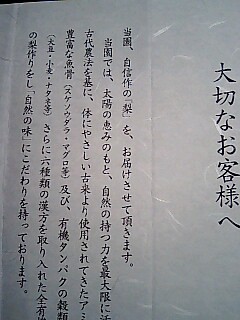 大切なお客様へ
当園、自信作の『梨』を、お届けさせて頂きます。
当園では、太陽の恵みのもと、自然の持つ力を最大限に活
古代農法を基に、体にやさしい古来より使用されてきたアミ
豊富な魚骨（スケソウダラ・マグロ等）及び、有機タンパクの穀類
（大豆・小麦・ナタネ等）さらに六種類の漢方を取り入れた全有機
の梨作りをし「自然の味」にこだわりを持っております。